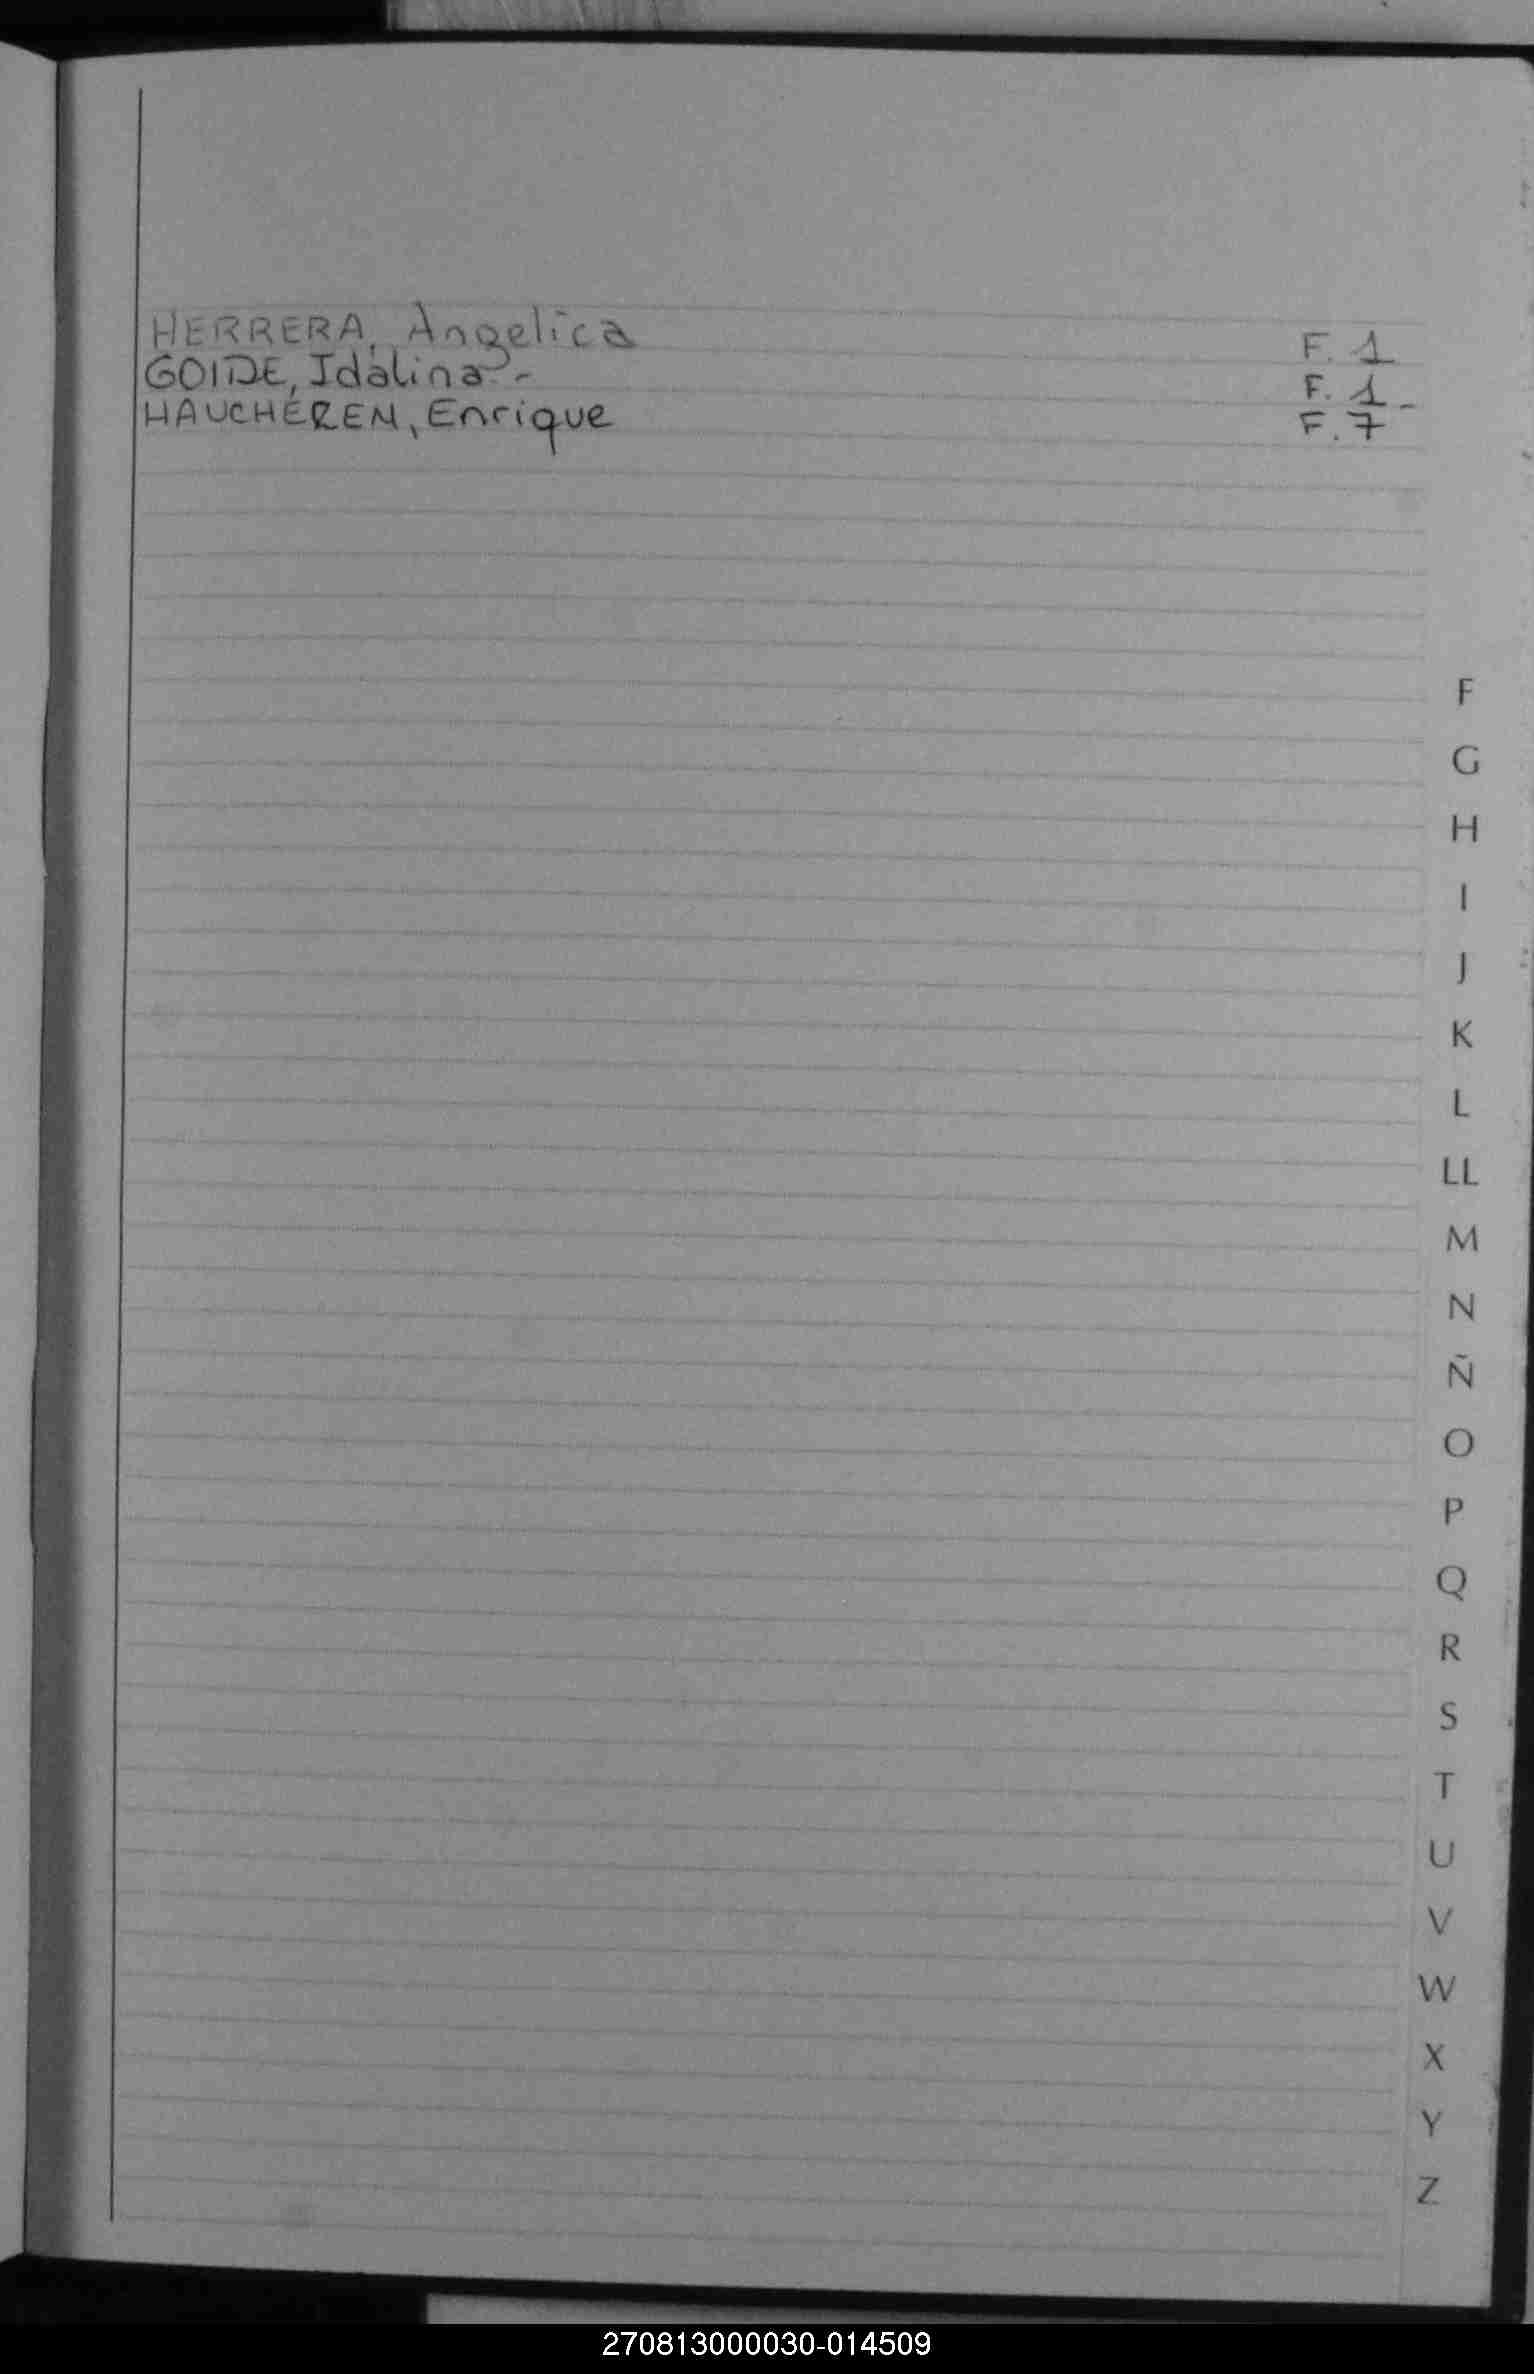 HERRERA, Angelica F. 1
GOIDE, Idalina.- F. 1_
HAUCHEREN, Enrique F. 7
F
G
H
I
J
K
L
LL
M
N
Ñ
O
P
Q
R
S
T
U
V
W
X
Y
Z
270813000030-014509